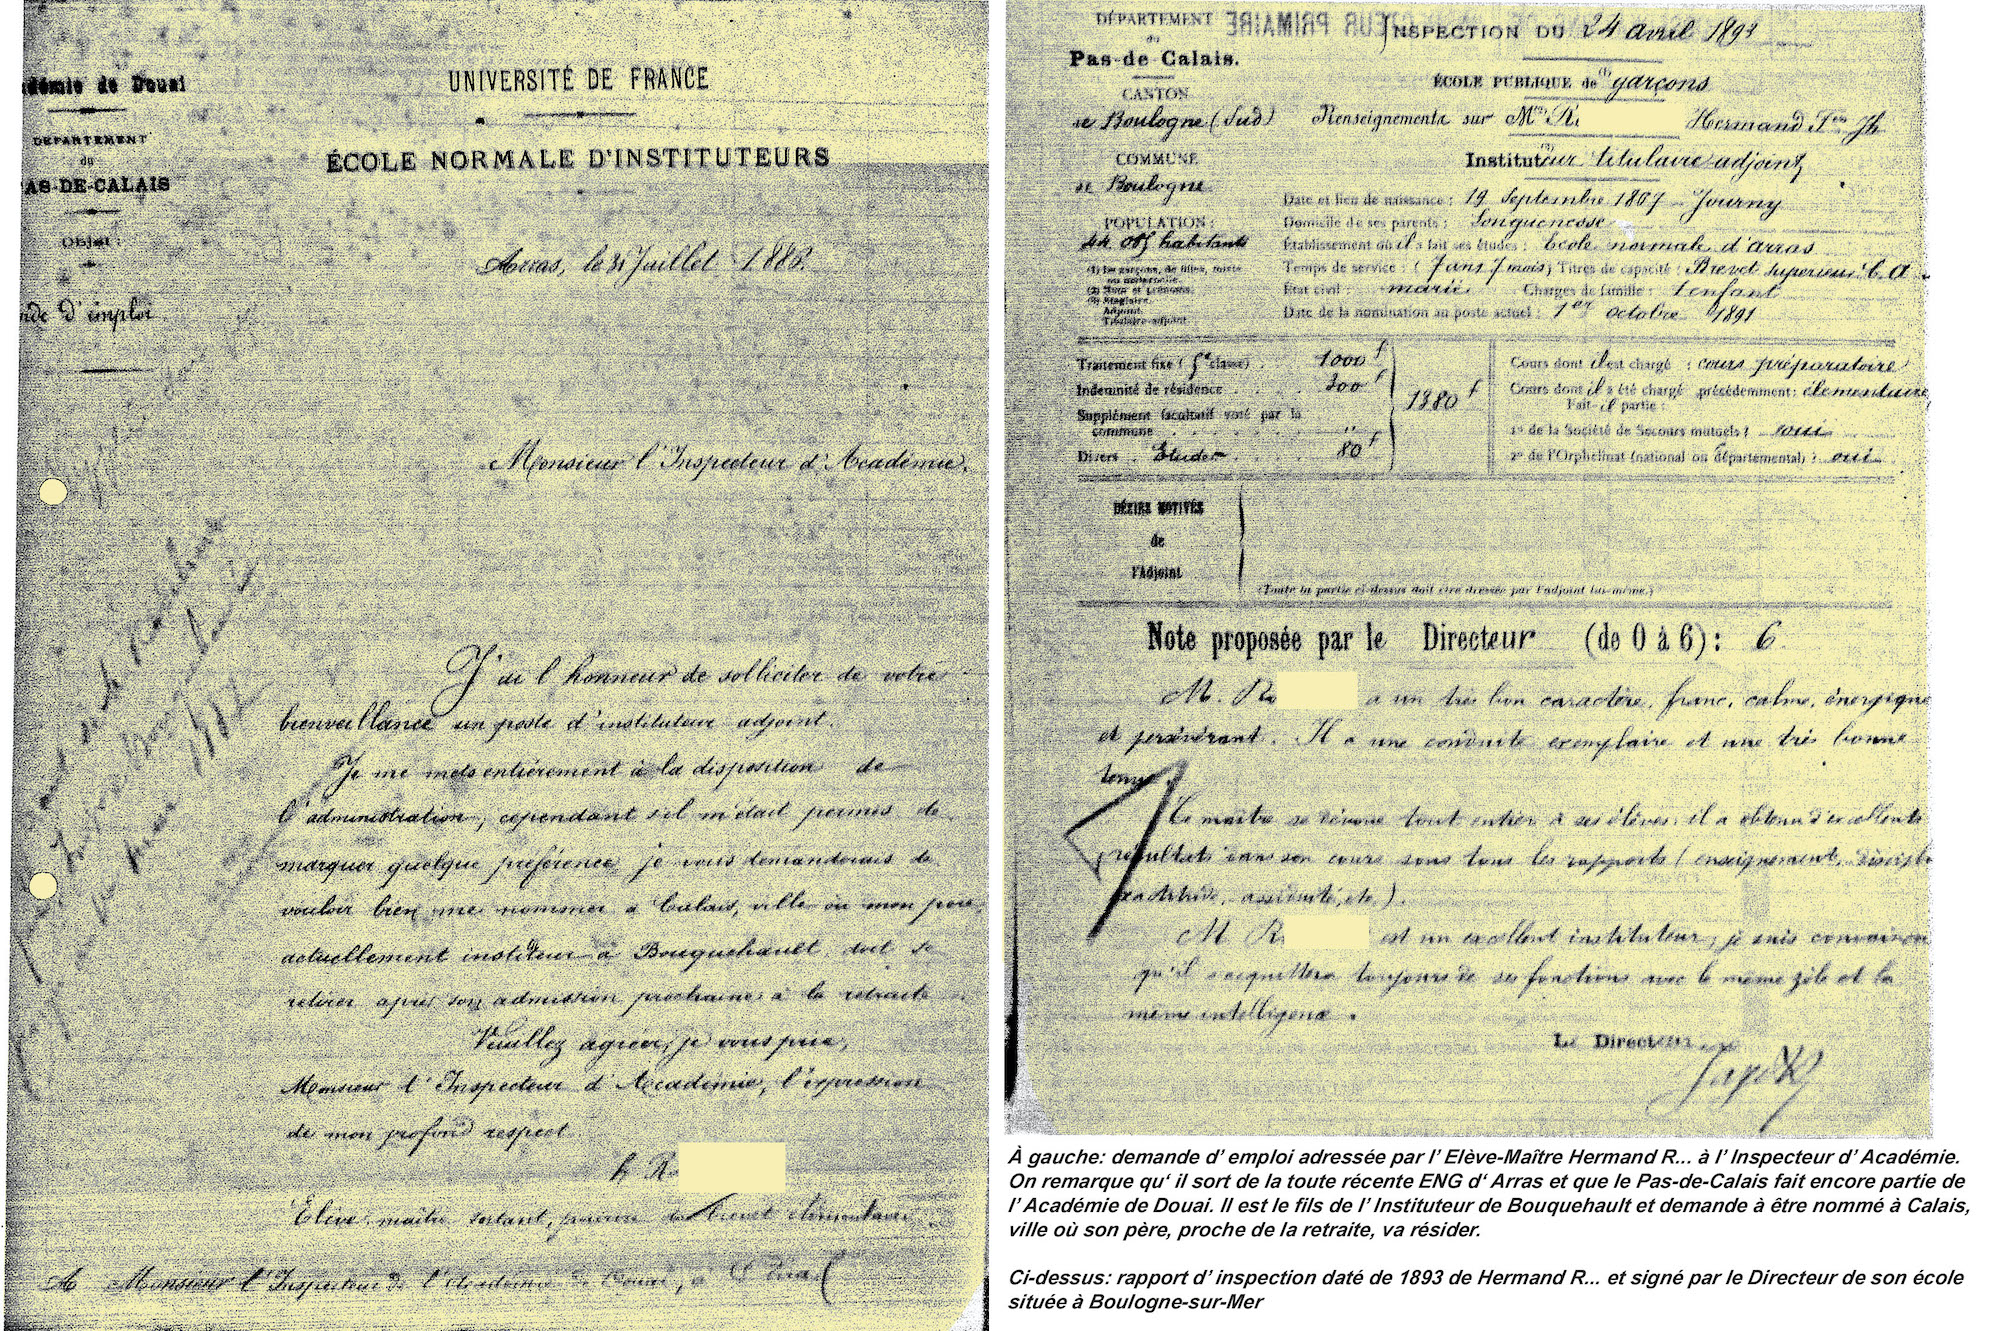 démie de Douai
DÉPARTEMENT
du
PAS-DE-CALAIS
Objet :
d'emploi
UNIVERSITÉ DE FRANCE
ÉCOLE NORMALE D'INSTITUTEURS
Arras, le 31 Juillet 1886.
Monsieur l'Inspecteur d'Académie,
J'ai l'honneur de solliciter de votre
bienveillance un poste d'instituteur adjoint.
Je me mets entièrement à la disposition de
l'administration, cependant s'il m'était permis de
marquer quelque préférence je vous demanderais de
vouloir bien me nommer à Calais, ville où mon père,
actuellement instituteur à Bouquehault, doit se
retirer après son admission prochaine à la retraite
Veuillez agréer, je vous prie,
Monsieur l'Inspecteur d'Académie, l'expression
de mon profond respect.
h R
Elève-maître sortant, pourvu du brevet élémentaire.
A Monsieur l'Inspecteur de l'Académie de Douai, à
DÉPARTEMENT
du
Pas-de-Calais.
CANTON
de Boulogne (Sud)
COMMUNE
de Boulogne
POPULATION :
habitants
INSPECTEUR PRIMAIRE
INSPECTION DU 24 avril 1893
ÉCOLE PUBLIQUE de (1) garçons
Renseignements sur Mr R. Hermand Jh
Instituteur titulaire adjoint
Date et lieu de naissance : 19 Septembre 1867 - Journy
Domicile de ses parents : Longuenesse
Établissement où il a fait ses études : École normale d'arras
Temps de service : (7 ans 7 mois) Titres de capacité : Brevet supérieur C. A.
État civil : marié Charges de famille : 1 enfant
Date de la nomination au poste actuel : 1er octobre 1891
(1) De garçons, de filles, mixte ou maternelle.
(2) Nom et prénoms.
(3) Stagiaire. Adjoint. Titulaire-adjoint.
Traitement fixe (5e classe) 1000 f
Indemnité de résidence 300 f
Supplément facultatif voté par la
commune "
Divers Etudes 80 f
1380 f
Cours dont il est chargé : cours préparatoire
Cours dont il a été chargé précédemment : élémentaire
Fait-il partie :
1° de la Société de Secours mutuels ? oui
2° de l'Orphelinat (national ou départemental) ? oui
DÉSIRS MOTIVÉS
de
l'Adjoint
(Toute la partie ci-dessus doit être dressée par l'adjoint lui-même.)
Note proposée par le Directeur (de 0 à 6) : 6
M. Ro a un très bon caractère, franc, calme, énergique
et persévérant. Il a une conduite exemplaire et une très bonne
tenue.
Ce maître se dévoue tout entier à ses élèves ; il a obtenu d'excellents
résultats dans son cours sous tous les rapports (enseignement, discipl
exactitude, assiduité, etc.).
M. R. est un excellent instituteur ; je suis convaincu
qu'il s'acquittera toujours de ses fonctions avec le même zèle et la
même intelligence.
Le Directeur
À gauche: demande d' emploi adressée par l' Elève-Maître Hermand R... à l' Inspecteur d' Académie.
On remarque qu' il sort de la toute récente ENG d' Arras et que le Pas-de-Calais fait encore partie de
l' Académie de Douai. Il est le fils de l' Instituteur de Bouquehault et demande à être nommé à Calais,
ville où son père, proche de la retraite, va résider.
Ci-dessus: rapport d' inspection daté de 1893 de Hermand R... et signé par le Directeur de son école
située à Boulogne-sur-Mer